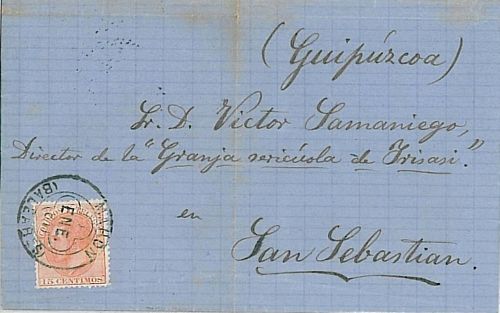 (Guipúzcoa)
Sr. D. Victor Samaniego,
Director de la "Granja sericícola de Irisasi."
en
San Sebastian.
MAHON
ENE
(BALEARES)
15 CENTIMOS